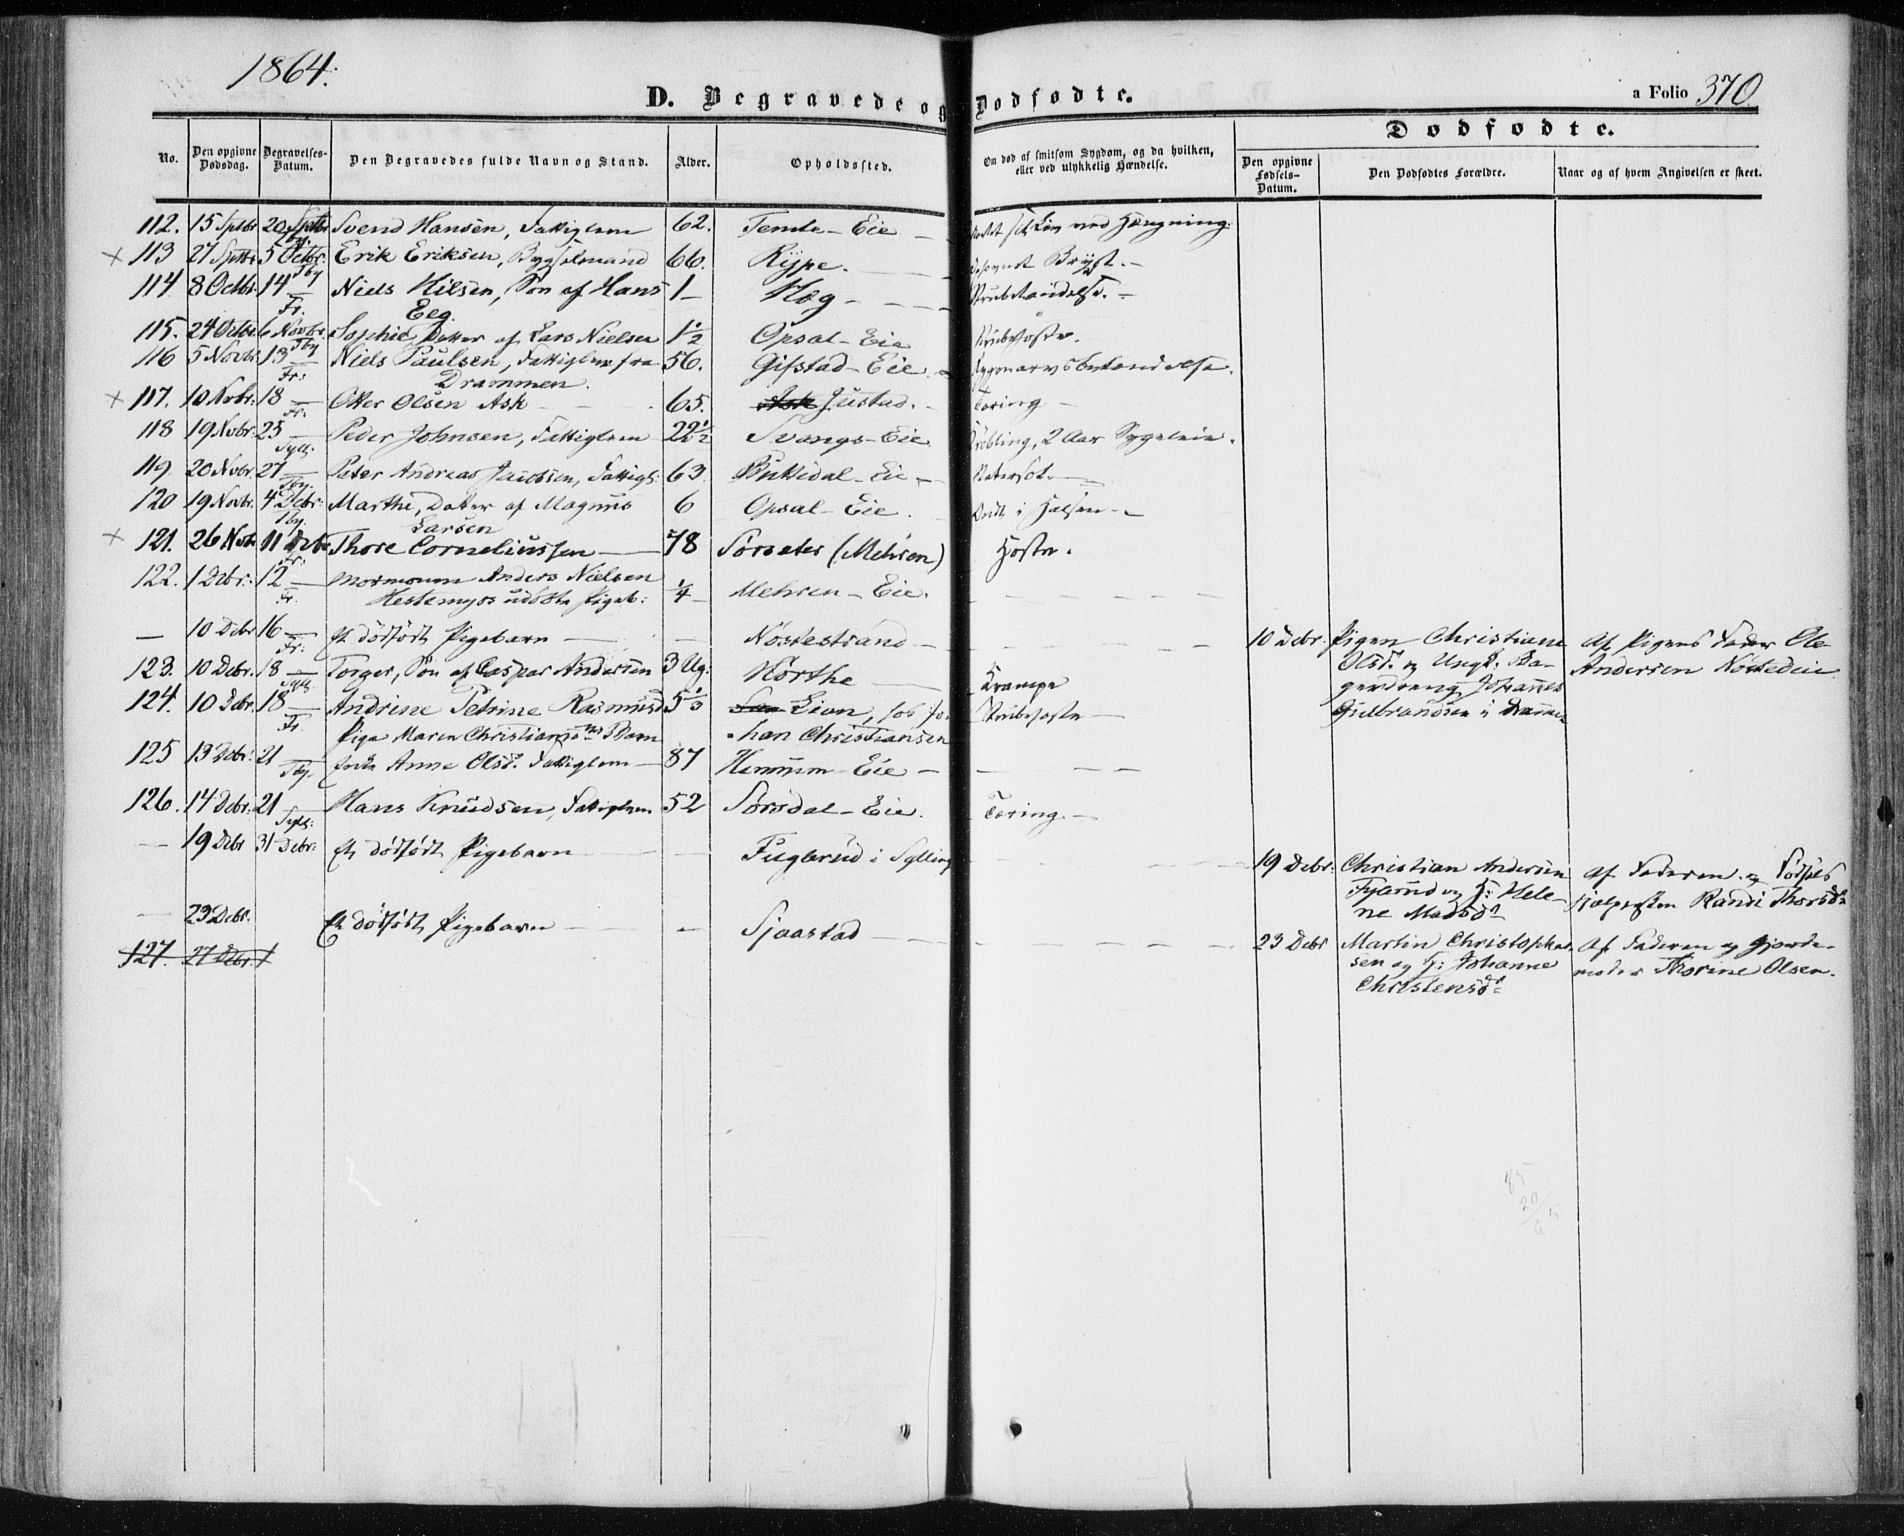 1864.
D. Begravede og Dødfødte.
a Folio 370
Dødfødte.
No. Den opgivne Dødsdag. Begravelses-Datum. Den Begravedes fulde Navn og Stand. Alder. Opholdssted. Om død af smitsom Sygdom, og da hvilken, eller ved ulykkelig Hændelse. Den opgivne Fødsels-Datum. Den Dødfødtes Forældre. Naar og af hvem Angivelsen er skeet.
112. 15 Septbr 20 Septbr Svend Hansen, Fattiglem 62. Eie ved Hængning.
Tby.
× 113 27 Septbr 5 Octbr. Erik Eriksen, Bygselmand 66. Rype.
Tby
114 8 Octbr. 14 Niels Nilsen, Søn af Hans 1 Høg Strubebetændelse.
Fr. Eeg.
115. 24 Octbr. 6 Novbr. Sophie, Datter af Lars Nielsen 1½ Opsal-Eie Strubehoste.
Tby
116 5 Novbr 13 Niels Paulsen, Fattiglem fra 56. Gifstad-Eie Rygmarvsbetændelse.
Fr. Drammen.
× 117. 10 Novbr. 18 Otter Olsen Ask 65. Justad. Tæring
Fr.
118 19 Novbr. 25 Peder Johnsen, Fattiglem 22½ Svangs-Eie Krøbling, 2 Aar Sygeleie.
Syll.
119 20 Novbr. 27 Peter Andreas Jacobsen, Fattigl. 63. Eie
Tby.
120 19 Novbr. 4 Decbr. Marthe, Datter af Magnus 6 Opsal-Eie. Ondt i Halsen
Tby. Larsen
× 121. 26 Novbr 11 Decbr Thore Corneliussen 78 Sørsæter (Mehren) Hoste.
Fr.
122. 1 Debr. 12 Mormonen Anders Nielsen ¼ Mehren-Eie.
Fr. Hestemyrs udøbte Pigeb.
10 Debr 16 Et dødfødt Pigebarn Nøstestrand 10 Debr. Pigen Christiane Af Pigens Fader Ole
Fr. Olsd. og Ungk. Ba- Andersen Nøstedeie
123. 10 Debr. 18 Torger, Søn af Caspar Andersen 3 Ug. Horthe Krampe gerdreng Johannes
Syll.
124. 10 Debr. 18 Andrine Petrine Rasmusd 5⅓ Lian, hos Jo- Strubehoste Gulbrandsen i Drammen
Fr. Pige Maren Christiansd. Barn han Christiansen
125 13 Debr. 21 Enke Anne Olsd. Fattiglem 87 Hennum-Eie
Tby.
126. 14 Debr. 21 Hans Knudsen, Fattiglem 52 Sørsdal-Eie. Tæring.
Syll.
19 Debr 31 Debr. Et dødfødt Pigebarn Fuglerud i Sylling 19 Debr. Christian Andersen Af Faderen og Fødsels
og H: Hele- hjælpersken Randi Thorsd.
ne Madsd.
23 Debr. Et dødfødt Pigebarn Sjaastad 23 Debr Martin Christopher- Af Faderen og Gjorde-
127. 27 Debr. sen og H: Johanne moder Thorine Olsen.
Christensd.
85
20
65